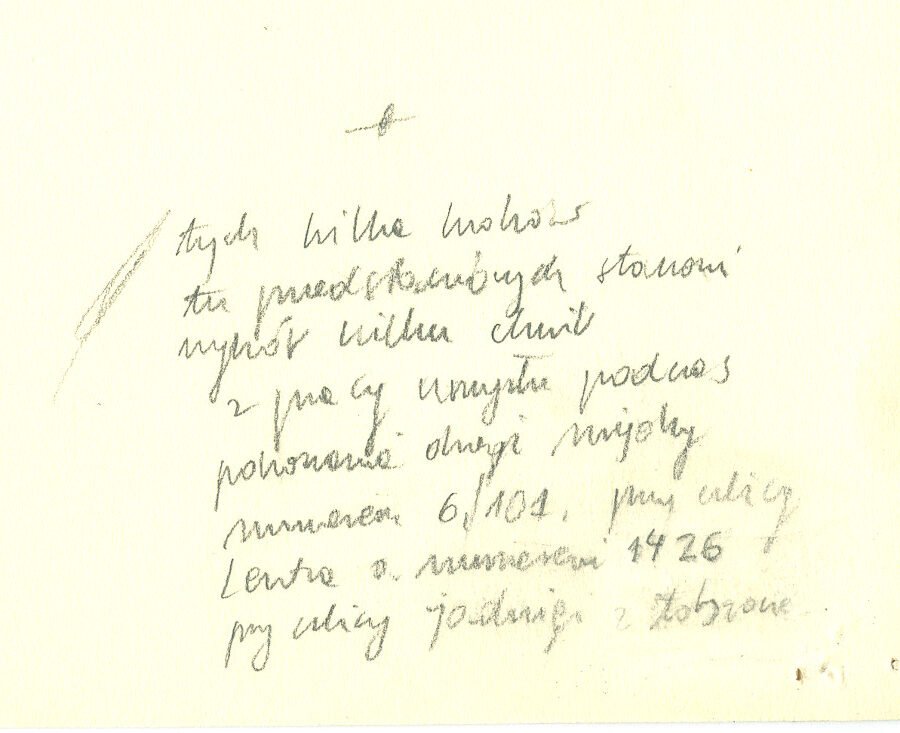 tych kilka kroków
tu przedstawionych stanowi
wybór kilku chwil
z pracy umysłu podczas
pokonania drogi między
numerem 6/101. przy ulicy
Lentza a numerem 1426
przy ulicy jadwigi z